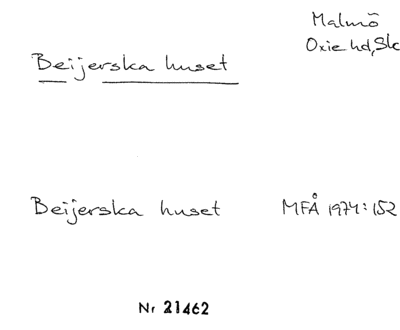 Malmö
Oxie hd, Sk
Beijerska huset
Beijerska huset MFÅ 1974:152
Nr 21462